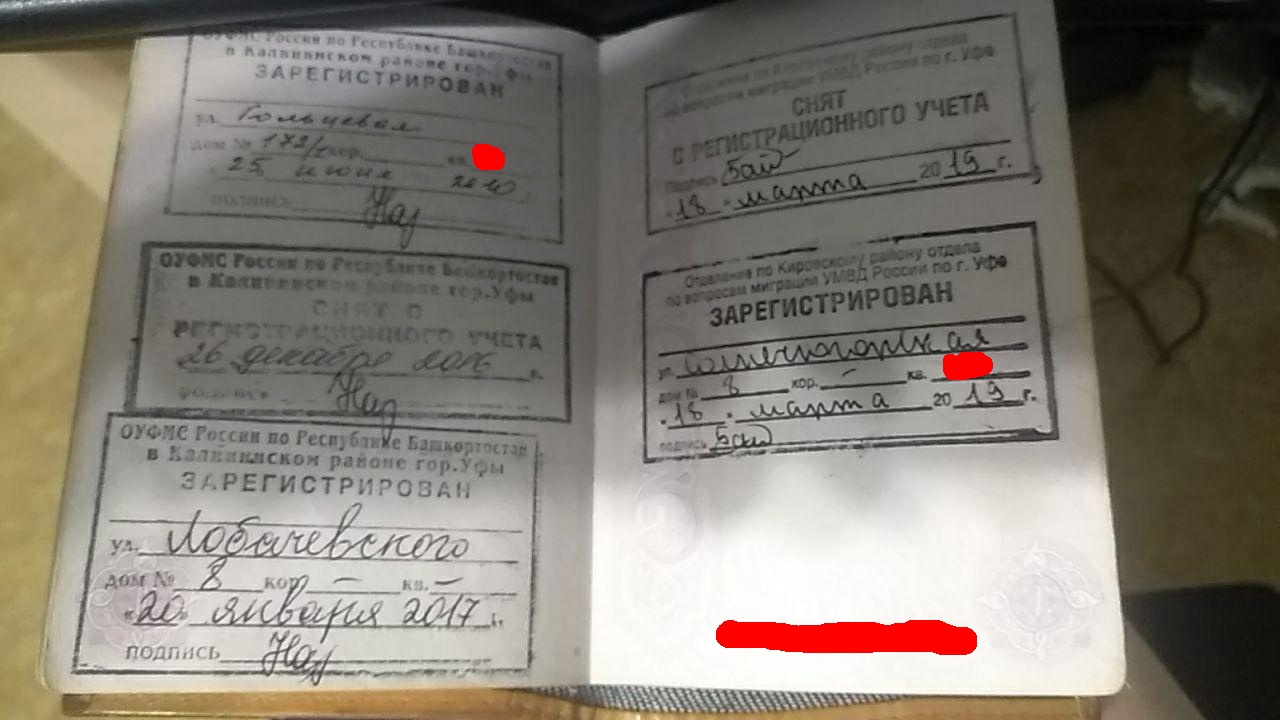 ОУФМС России по Республике Башкортостан
в Калининском районе гор.Уфы
ЗАРЕГИСТРИРОВАН
ул. Гольцевая
дом № 172/1 кор. кв.
25 июня 2010 г.
подпись
ОУФМС России по Республике Башкортостан
в Калининском районе гор.Уфы
СНЯТ С
РЕГИСТРАЦИОННОГО УЧЕТА
26 декабря 2016 г.
подпись
ОУФМС России по Республике Башкортостан
в Калининском районе гор.Уфы
ЗАРЕГИСТРИРОВАН
ул. Лобачевского
дом № 8 кор – кв. –
«20» января 2017 г.
подпись
Отделением по Кировскому району отдела
по вопросам миграции УМВД России по г. Уфа
СНЯТ
С РЕГИСТРАЦИОННОГО УЧЕТА
Подпись Бай
"18" марта 2019 г.
Отделение по Кировскому району отдела
по вопросам миграции УМВД России по г. Уфа
ЗАРЕГИСТРИРОВАН
ул. Солнечногорская
дом № 8 кор. – кв.
"18" марта 2019 г.
подпись Бай